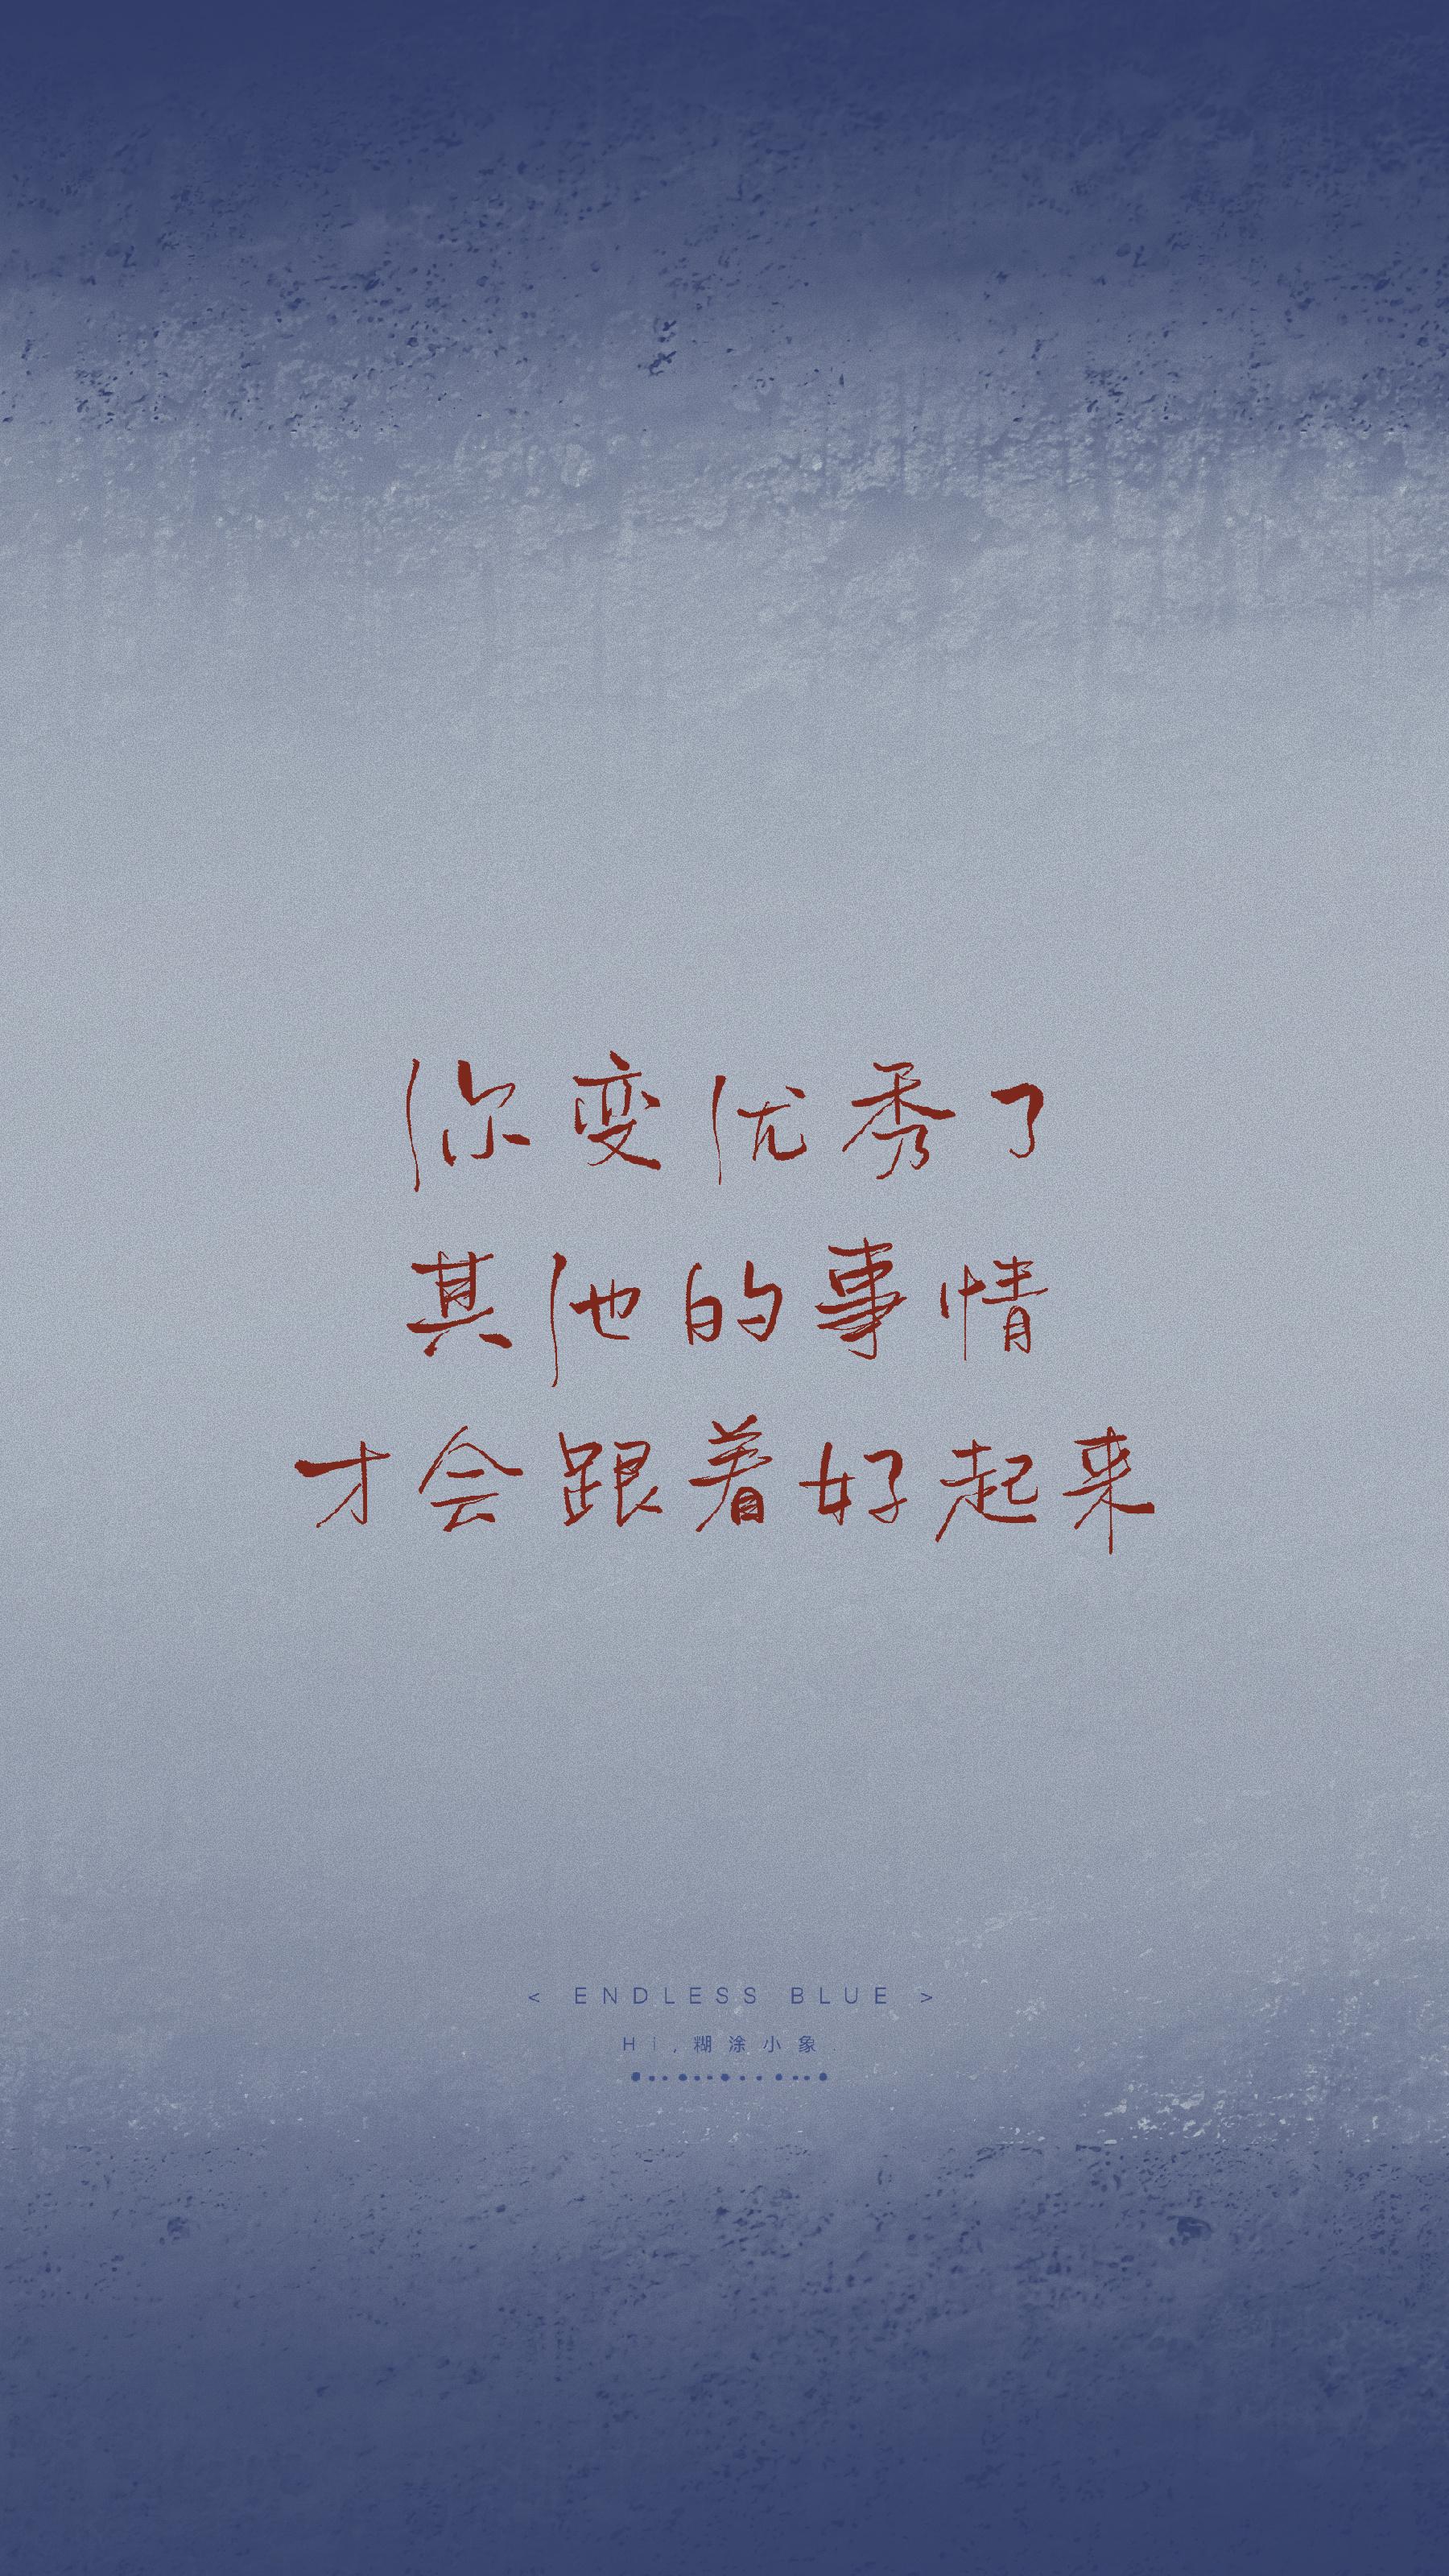 你变优秀了
其他的事情
才会跟着好起来
< ENDLESS BLUE >
Hi,糊涂小象.